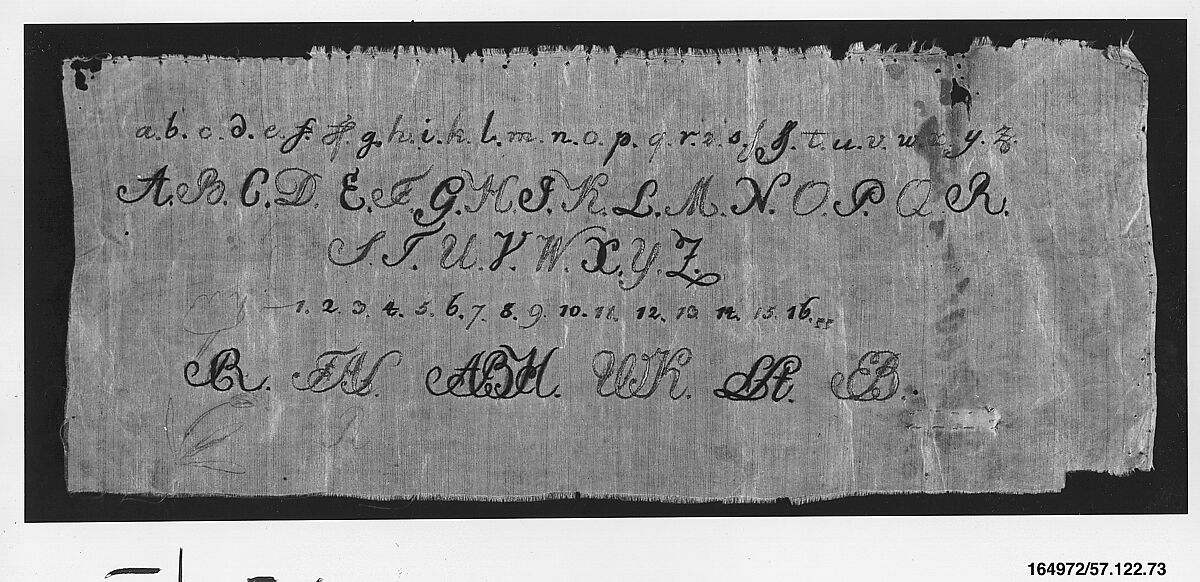 a. b. c. d. e. f. ff. g. h. i. k. l. m. n. o. p. q. r. z. s. ſ. ſſ. t. u. v. w. x. y. z.
A. B. C. D. E. F. G. H. I. K. L. M. N. O. P. Q. R.
S. T. U. V. W. X. Y. Z.
1. 2. 3. 4. 5. 6. 7. 8. 9. 10. 11. 12. 13. 14. 15. 16.
R. FY. ABH. WK. B.
164972/57.122.73